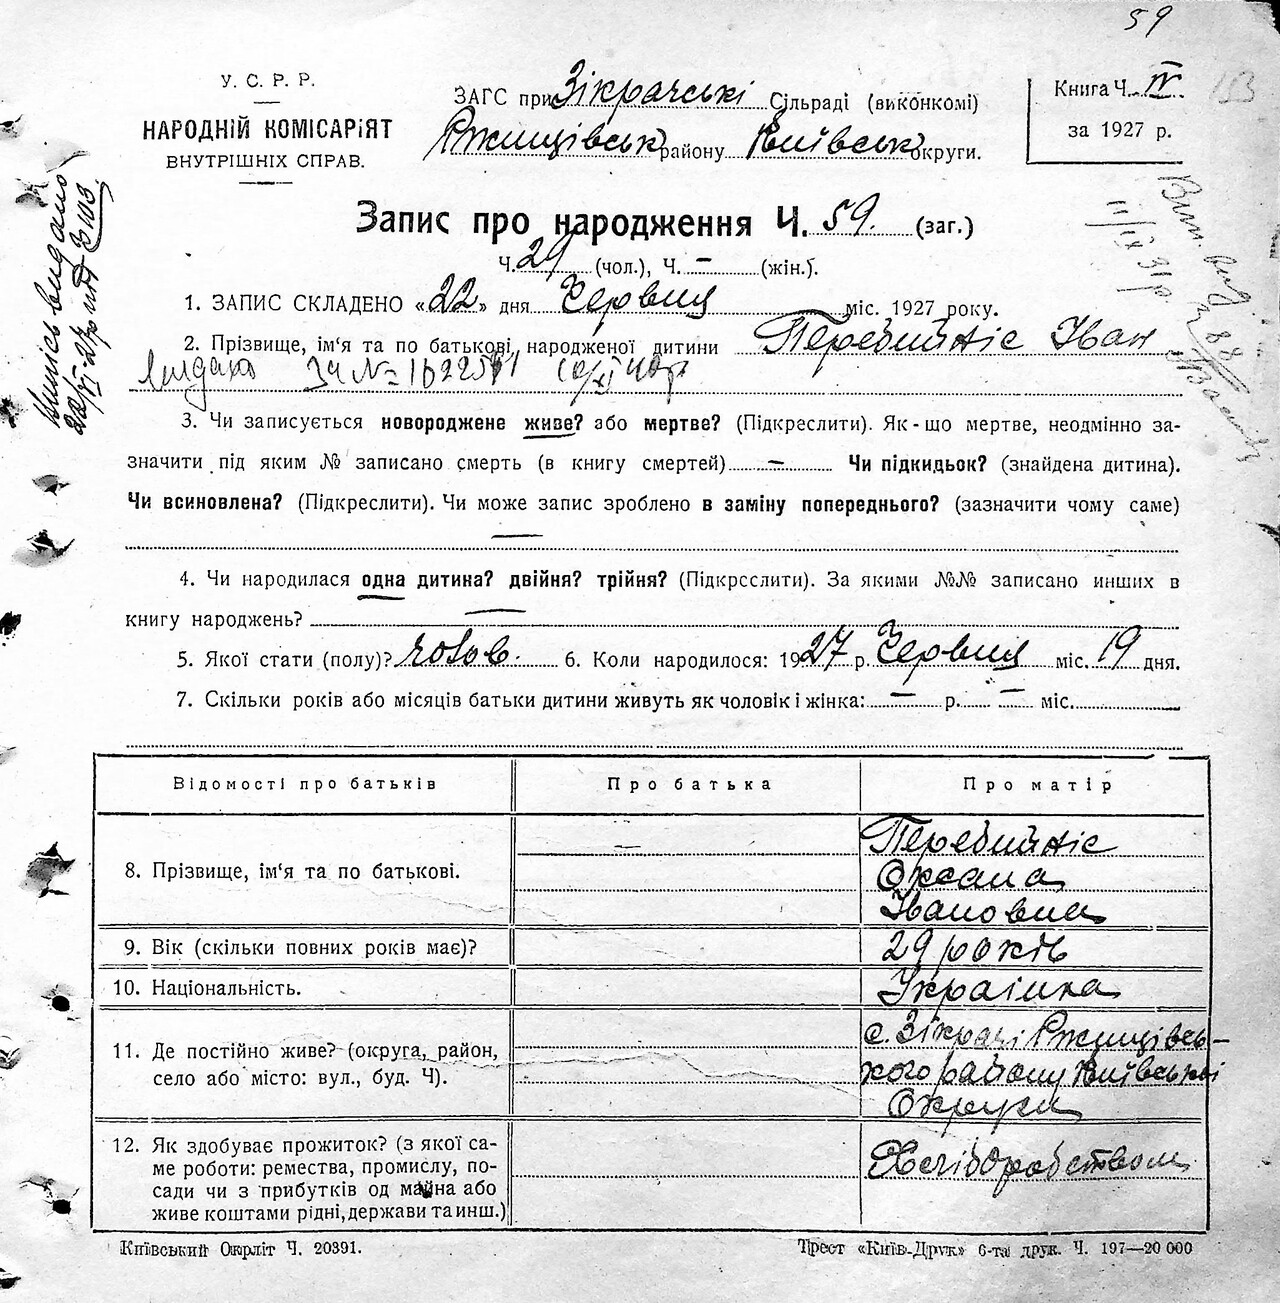 59
У. С. Р. Р.
НАРОДНІЙ КОМІСАРІЯТ
ВНУТРІШНІХ СПРАВ.
ЗАГС при Зікрачські Сільраді (виконкомі)
Ржищівськ району Київськ округи.
Книга Ч. IV
за 1927 р.
153
Запис про народження Ч. 59. (заг.)
Ч. 29 (чол.), Ч. — (жін.).
1. ЗАПИС СКЛАДЕНО «22» дня Червня міс. 1927 року.
2. Прізвище, ім‘я та по батькові народженої дитини Перебийніс Іван
3. Чи записується новороджене живе? або мертве? (Підкреслити). Як-що мертве, неодмінно за-
значити під яким № записано смерть (в книгу смертей) — Чи підкидьок? (знайдена дитина).
Чи всиновлена? (Підкреслити). Чи може запис зроблено в заміну попереднього? (зазначити чому саме)
—
4. Чи народилася одна дитина? двійня? трійня? (Підкрсслити). За якими №№ записано инших в
книгу народжень? —
5. Якої стати (полу)? чолов. 6. Коли народилося: 1927 р. Червня міс. 19 дня.
7. Скільки років або місяців батьки дитини живуть як чоловік і жінка: — р. — міс.
Відомості про батьків
Про батька
Про матір
8. Прізвище, ім‘я та по батькові.
—
Перебийніс
Оксана
Івановна
9. Вік (скільки повних років має)?
29 років
10. Національність.
Українка
11. Де постійно живе? (округа, район,
село або місто: вул., буд. Ч).
с. Зікрачі Ржищівсь-
кого району Київської
Округи
12. Як здобуває прожиток? (з якої са-
ме роботи: ремества, промислу, по-
сади чи з прибутків од майна або
живе коштами рідні, держави та инш.)
Хліборобством
Київський Окрліт Ч. 20391.
Трест «Київ-Друк» 6-та друк. Ч. 197—20 000